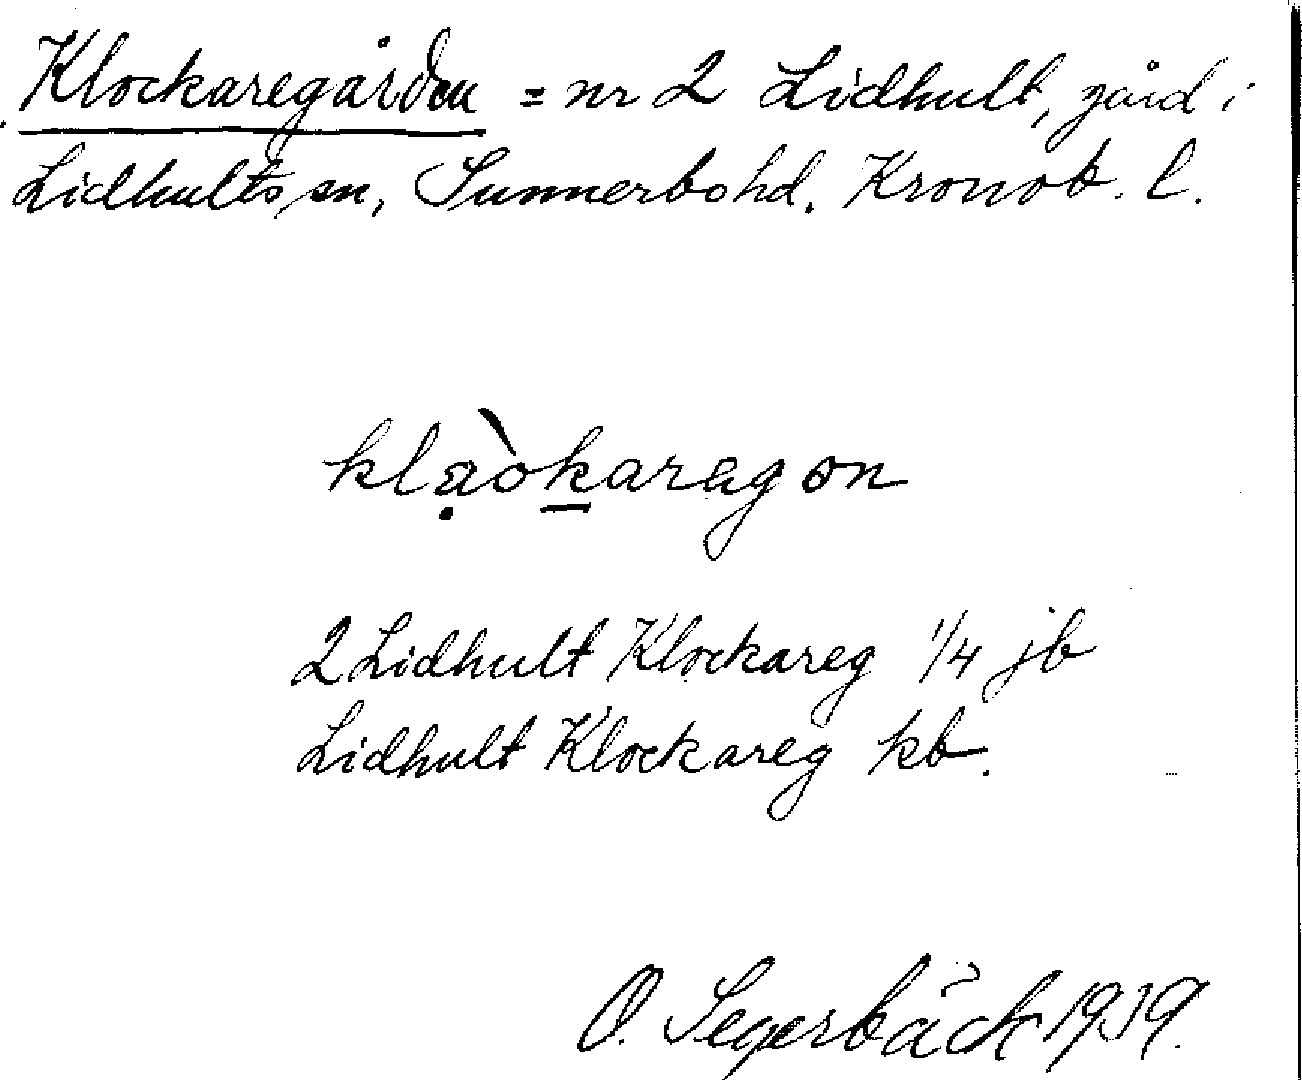 Klockaregården = nr 2 Lidhult, gård i
Lidhults sn, Sunnerbo hd. Kronob. l.
klạòk̲aragon
2 Lidhult Klockareg 1/4 jb
Lidhult Klockareg kb.
O. Segerbäck 1939.